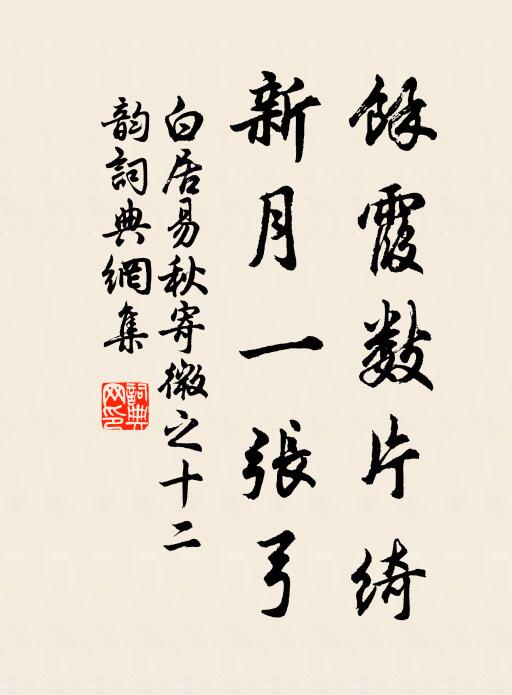 餘霞數片綺
新月一張弓
白居易秋寄微之十二
韵詞典網集
詞典网印